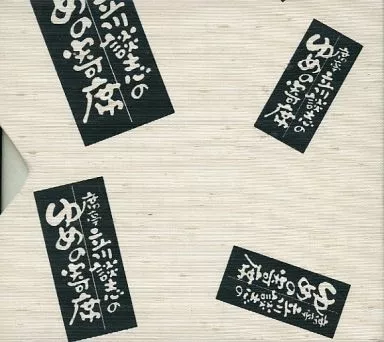 立川談志の
ゆめの寄席
席亭 立川談志の
ゆめの寄席
席亭 立川談志の
ゆめの寄席
席亭 立川談志の
ゆめの寄席